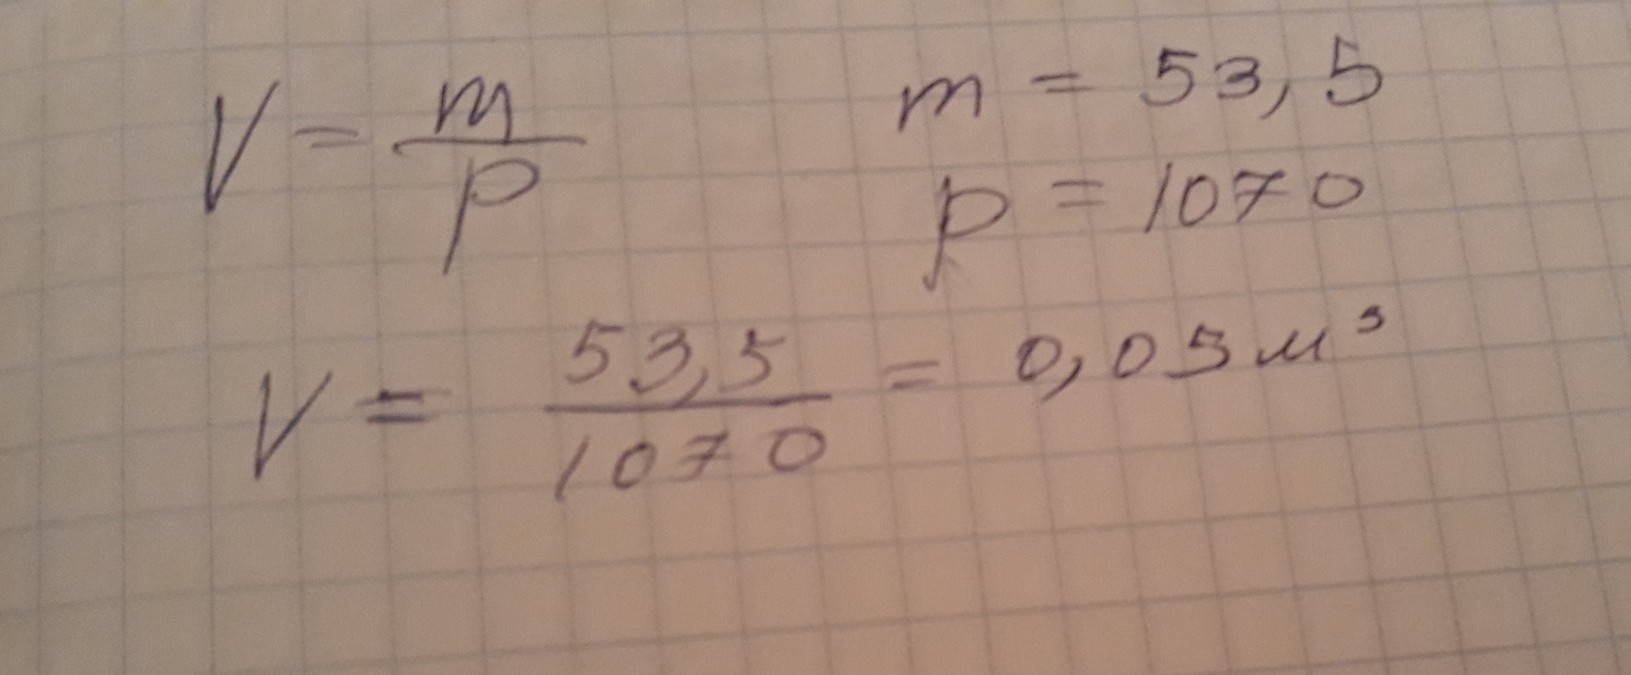 V = m/p m = 53,5
p = 1070
V = 53,5/1070 = 0,05 м³